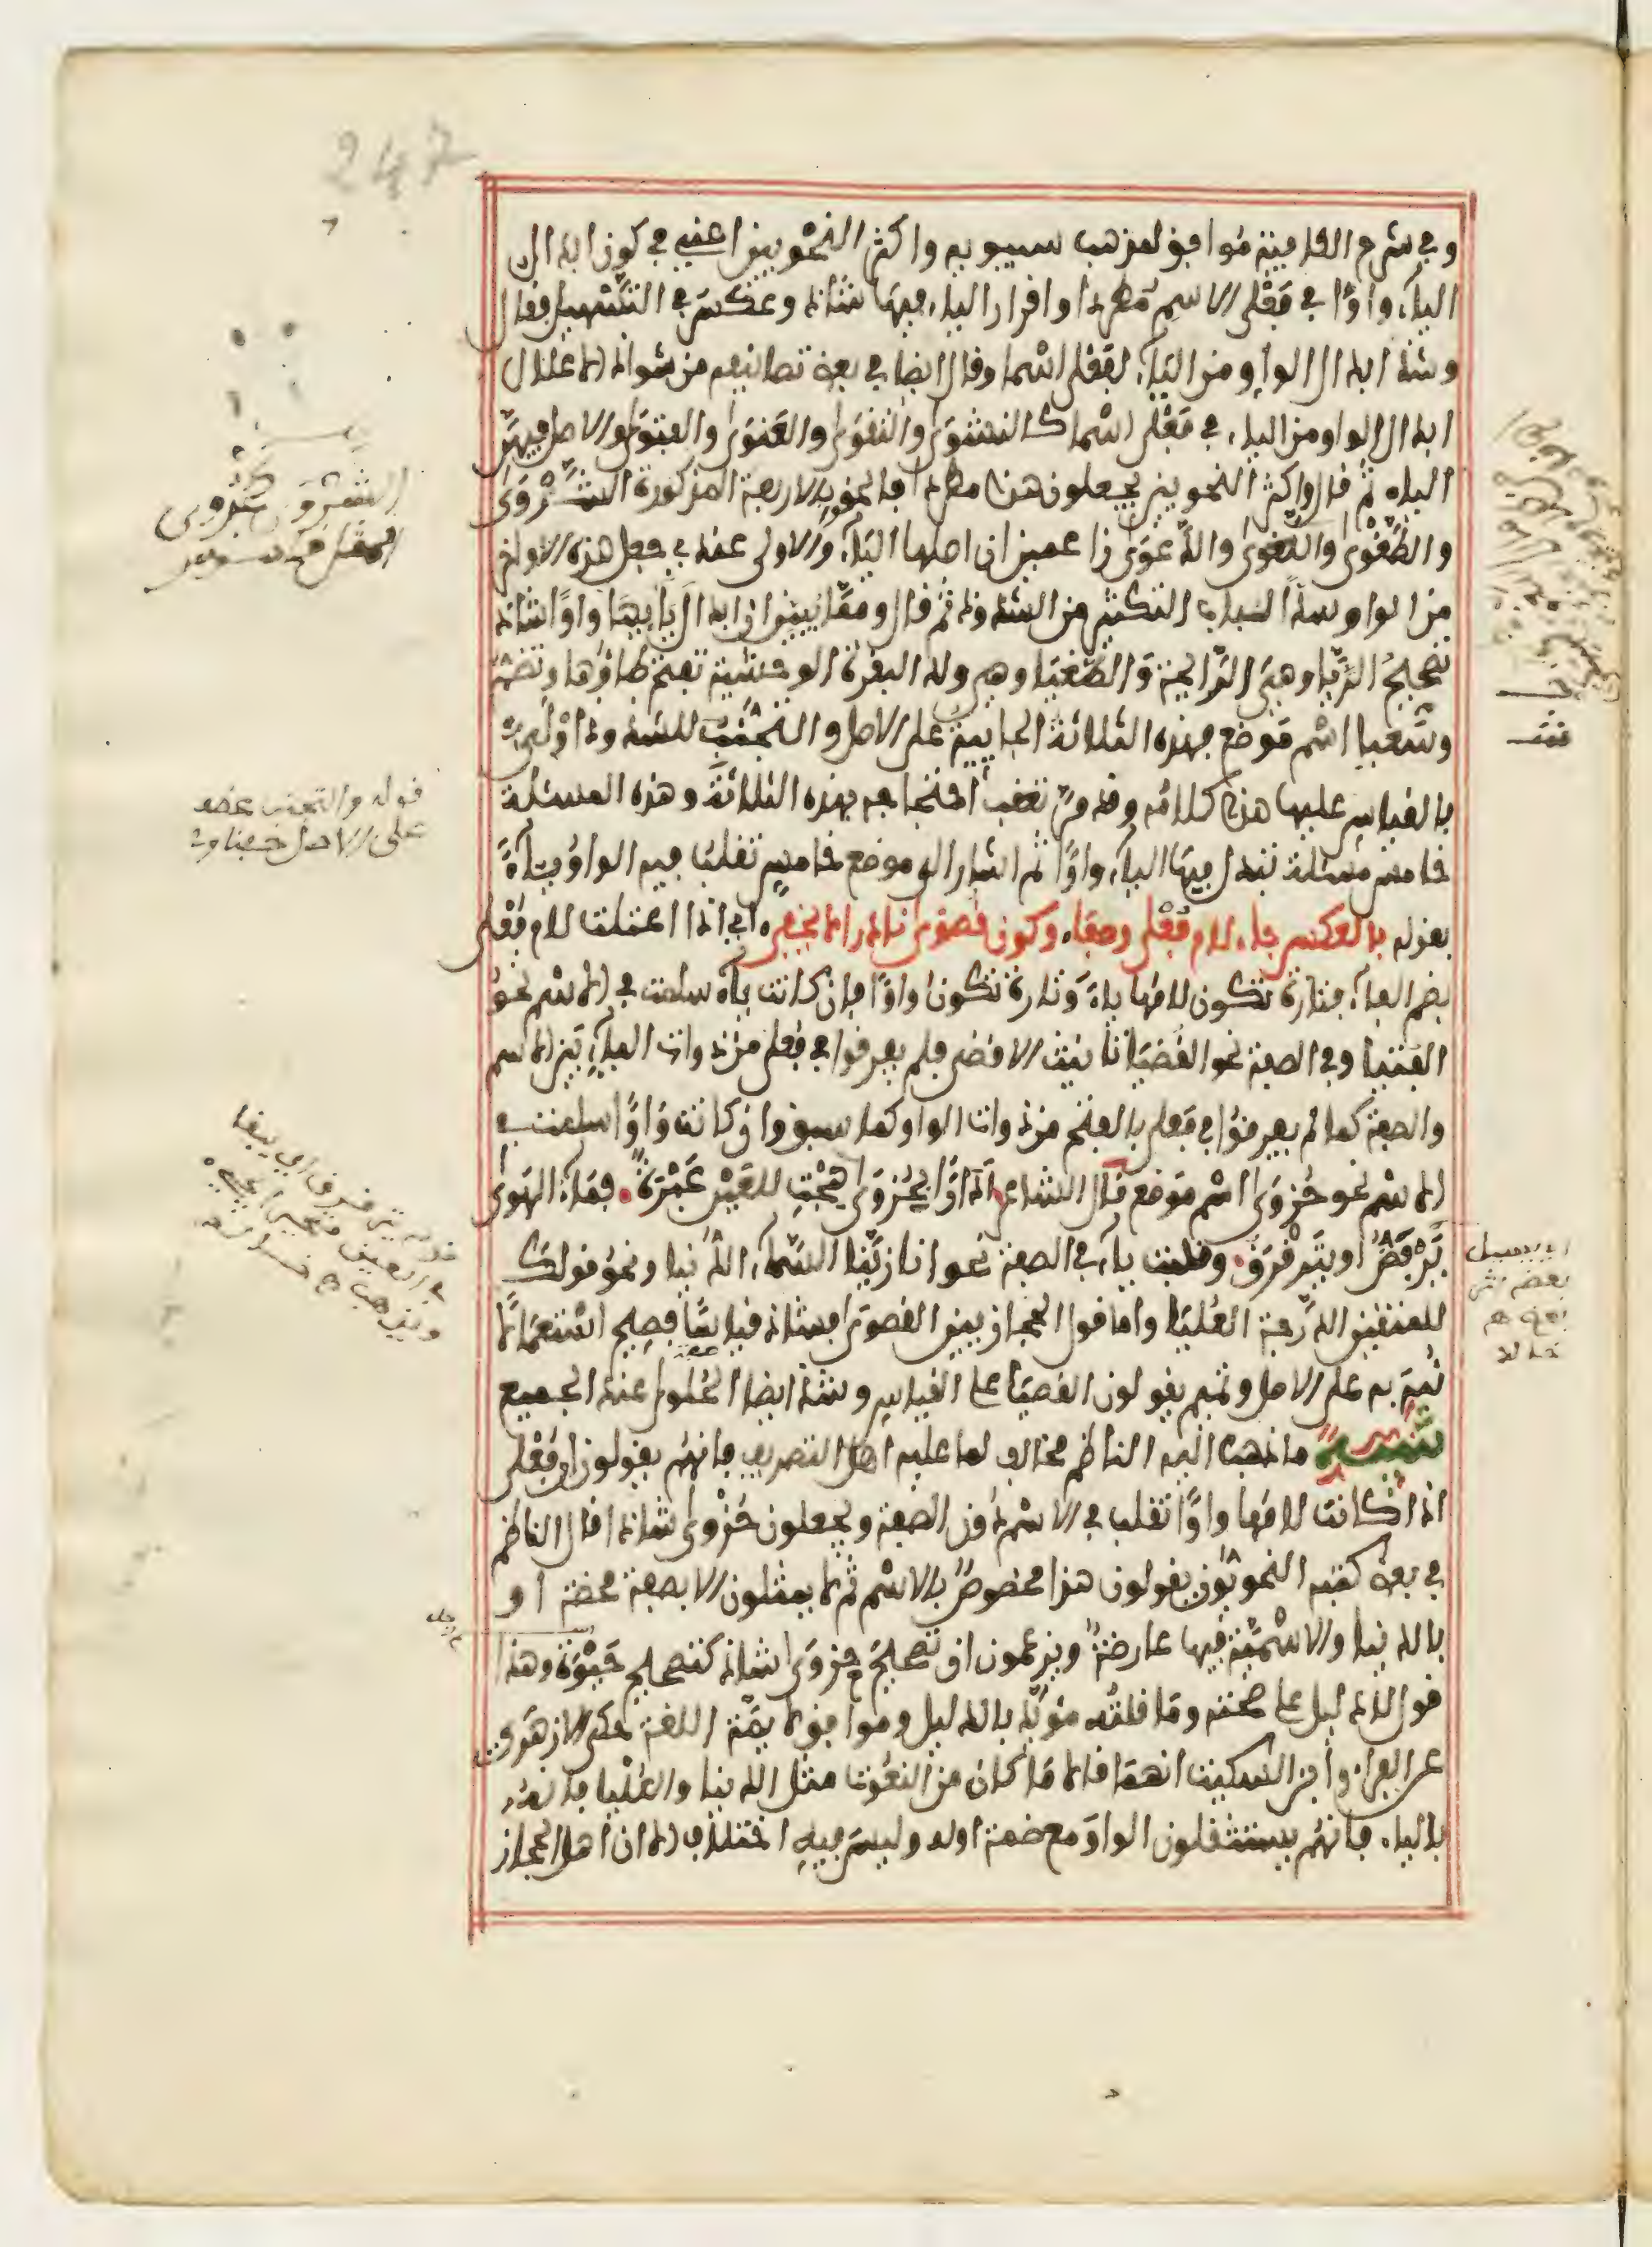 247
وفي شرح الكافية موافق لمذهب سيبويه واكثر النحويين اعني في كون ابدال
الياء واوًا في فَعْلى الاسم مطردا واقرار الياء فيها شاذا وعكس في التسهيل فقال
وشذ ابدال الواو من الياء لفعلى اسما وقال ايضا في بعض تصانيفه من شواذ الاعلال
ابدال الواو من الياء في فَعْلى اسما كالنشوى والتقوى والعنوى والفتوى والاصل فيهن
الياء ثم قال واكثر النحويين يجعلون هذا مطردا فالحقوا بالاربعة المذكورة الشَّرْوى
والطَّغْوى واللَّغوى والدَّعوى زاعمين ان اصلها الياء والاولى عندي جعل هذه الاواخر
من الواو سدا لباب التكثير من الشذوذ ثم قال ومما يبين ان ابدال يايها واوًا شاذ
تصحيح الرَّيَّا وهي الرائحة والطَّغْيَا وهي ولد البقرة الوحشية تفتح طاؤها وتضم
وسَعْيا اسم موضع فهذه الثلاثة الجايية على الاصل والتجنب للشذوذ اولى
بالقياس عليها هذا كلامه وقد مرّ تعقب احتجاجه بهذه الثلاثة وهذه المسئلة
خامس مسئلة تبدل فيها الياء واوًا ثم اشار الى موضع خامس تقلب فيه الواو ياءً
بقوله بالعكس جاء لام فُعْلى وصفا، وكون قصوى نادرا لا يخفى، اي اذا اعتلت لام فُعْلى
بضم الفاء فتارة تكون لامها ياء وتارة تكون واوًا فان كانت ياء سلمت في الاسم نحو
الفتيا وفي الصفة نحو القُضيَا تانيث الاقضى فلم يفرقوا في فُعلى من ذوات الياء بين الاسم
والصفة كما لم يفرقوا في فَعلى بالفتح من ذوات الواو كما سبق وان كانت واوًا سلمت في
الاسم نحو حُزْوَى اسم موضع قال الشاعر أدارًا بحُزوى هِجْتِ للعين عَبْرَةً، فماء الهوى
يَرْفَضُّ او يَتَرَقْرَقُ، وقلبت ياء في الصفة نحو انا زيَّنا السَّماء الدنيا ونحو قولك
للمتقين الدرجة العُليَا واما قول الحجازيين القصوى فشاذ قياسًا فصيح استعمالا
نُبِّهَ به على الاصل وتميم يقولون القصيَا على القياس وشذ ايضا الحُلوى عند الجميع
تنبيه ما ذهب اليه الناظم مخالف لما عليه اهل التصريف فانهم يقولون ان فُعْلى
اذا كانت لامها واوًا تقلب في الاسم دون الصفة ويجعلون حُزْوى شاذا قال الناظم
في بعض كتبه النحويون يقولون هذا مخصوص بالاسم ثم لا يمثلون الا بصفة محضة او
بالدنيا والاسمية فيها عارضة ويزعمون ان تصحيح حزوى شاذ كتصحيح حَيْوَة وهذا
قول لا دليل على صحته وما قلتُه مؤيَّد بالدليل وموافق لايمة اللغة حكى الازهرى
عن الفراء وابن السكيت انهما قالا ما كان من النعوت مثل الدنيا والعُلْيا فانه
بالياء فانهم يستثقلون الواو مع ضمة اوله وليس فيه اختلاف الا ان اهل الحجاز
قوله والتجنب عطف
على الاصل
اي يسيل
بعضه اثر
بعض هـ
خالد